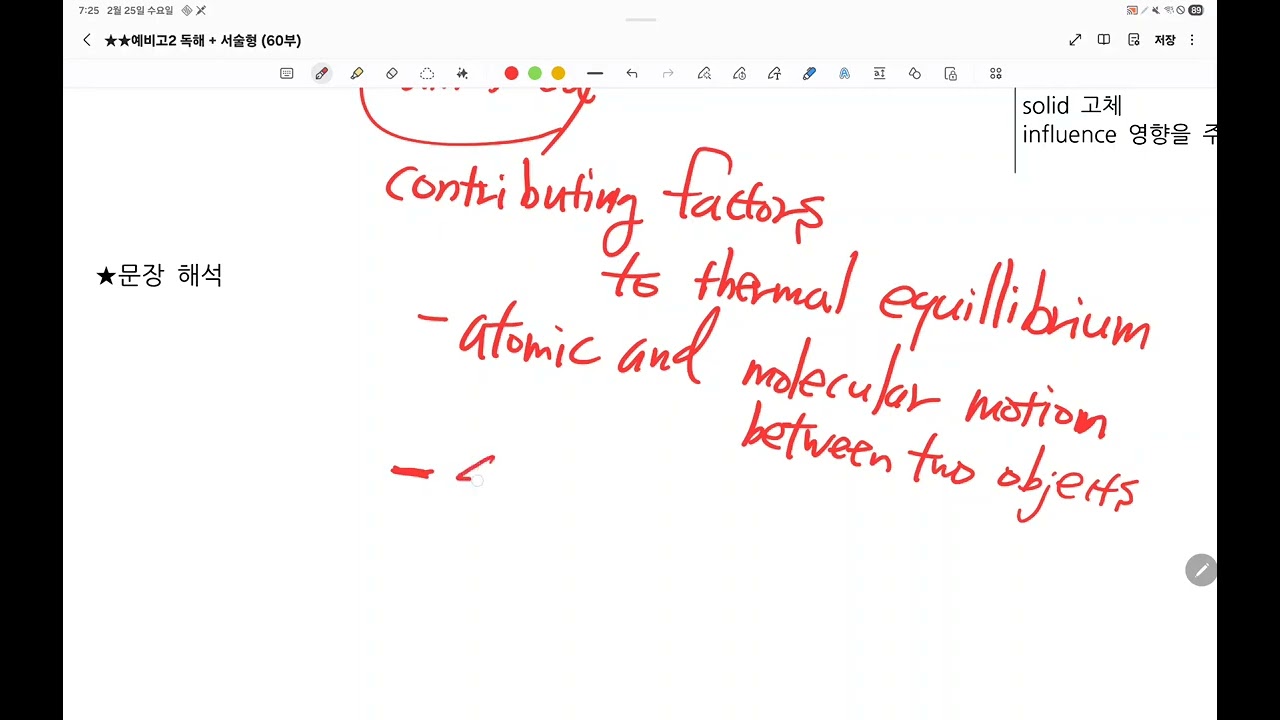 7:25 2월 25일 수요일
89
★★예비고2 독해 + 서술형 (60부)
저장
solid 고체
influence 영향을
contributing factors
to thermal equillibrium
★문장 해석
- atomic and molecular motion
between two objects
-